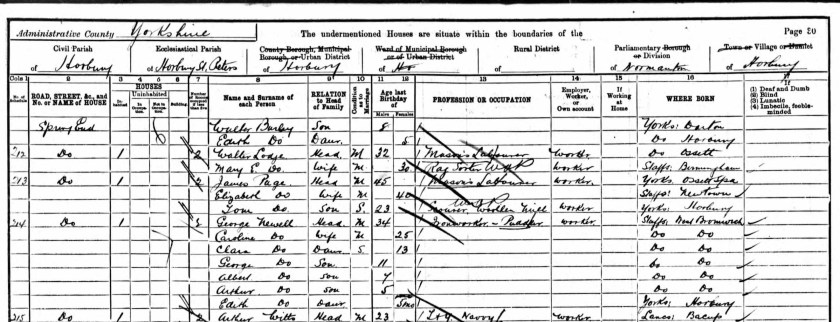 Administrative County Yorkshire The undermentioned Houses are situate within the boundaries of the Page 30
Civil Parish Ecclesiastical Parish County Borough, Municipal Borough, or Urban District Ward of Municipal Borough or of Urban District Rural District Parliamentary Borough or Division Town or Village or Hamlet
of Horbury of Horbury St. Peters of Horbury of Ho of of Normanton of Horbury
Cols 1 2 3 4 5 6 7 8 9 10 11 12 13 14 15 16 17
No. of Schedule ROAD, STREET, &c., and No. or NAME of HOUSE HOUSES Inhabited Uninhabited Building Name and Surname of each Person RELATION to Head of Family Condition as to Marriage Age last Birthday of Males Females PROFESSION OR OCCUPATION Employer, Worker, or Own account If Working at Home WHERE BORN (1) Deaf and Dumb (2) Blind (3) Lunatic (4) Imbecile, feeble-minded
Spring End Walter Son 8 Yorks: Darton
Edith Do Daur. 5 Do Horbury
212 Do 1 2 Walter Lodge Head M 32 Mason's Labourer Worker Do Ossett
Mary E. Do. Wife M 30 Rag Sorter Worker Staffs: Birmingham
213 Do 1 2 James Page Head M 45 Mason's Labourer Worker. Yorks, Ossett Spa
Elizabeth Do Wife M 40 Staffs:
Tom Do. Son S. 23 Woollen Mill Worker Yorks: Horbury
214 Do 1 George Newell Head. M 34 Ironworker - Puddler Worker Staffs: West Bromwich
Caroline Do Wife M 25 Do Do
Clara Do Daur S 13 Do Do
George Do Son 11 Do Do
Albert Do Son 7 Do Do
Arthur Do Son 5 Do Do
Edith Do Daur. 5mo Yorks: Horbury
215 Do 1 2 Arthur Witts Head M 23 Navvy Worker Lancs: Bacup